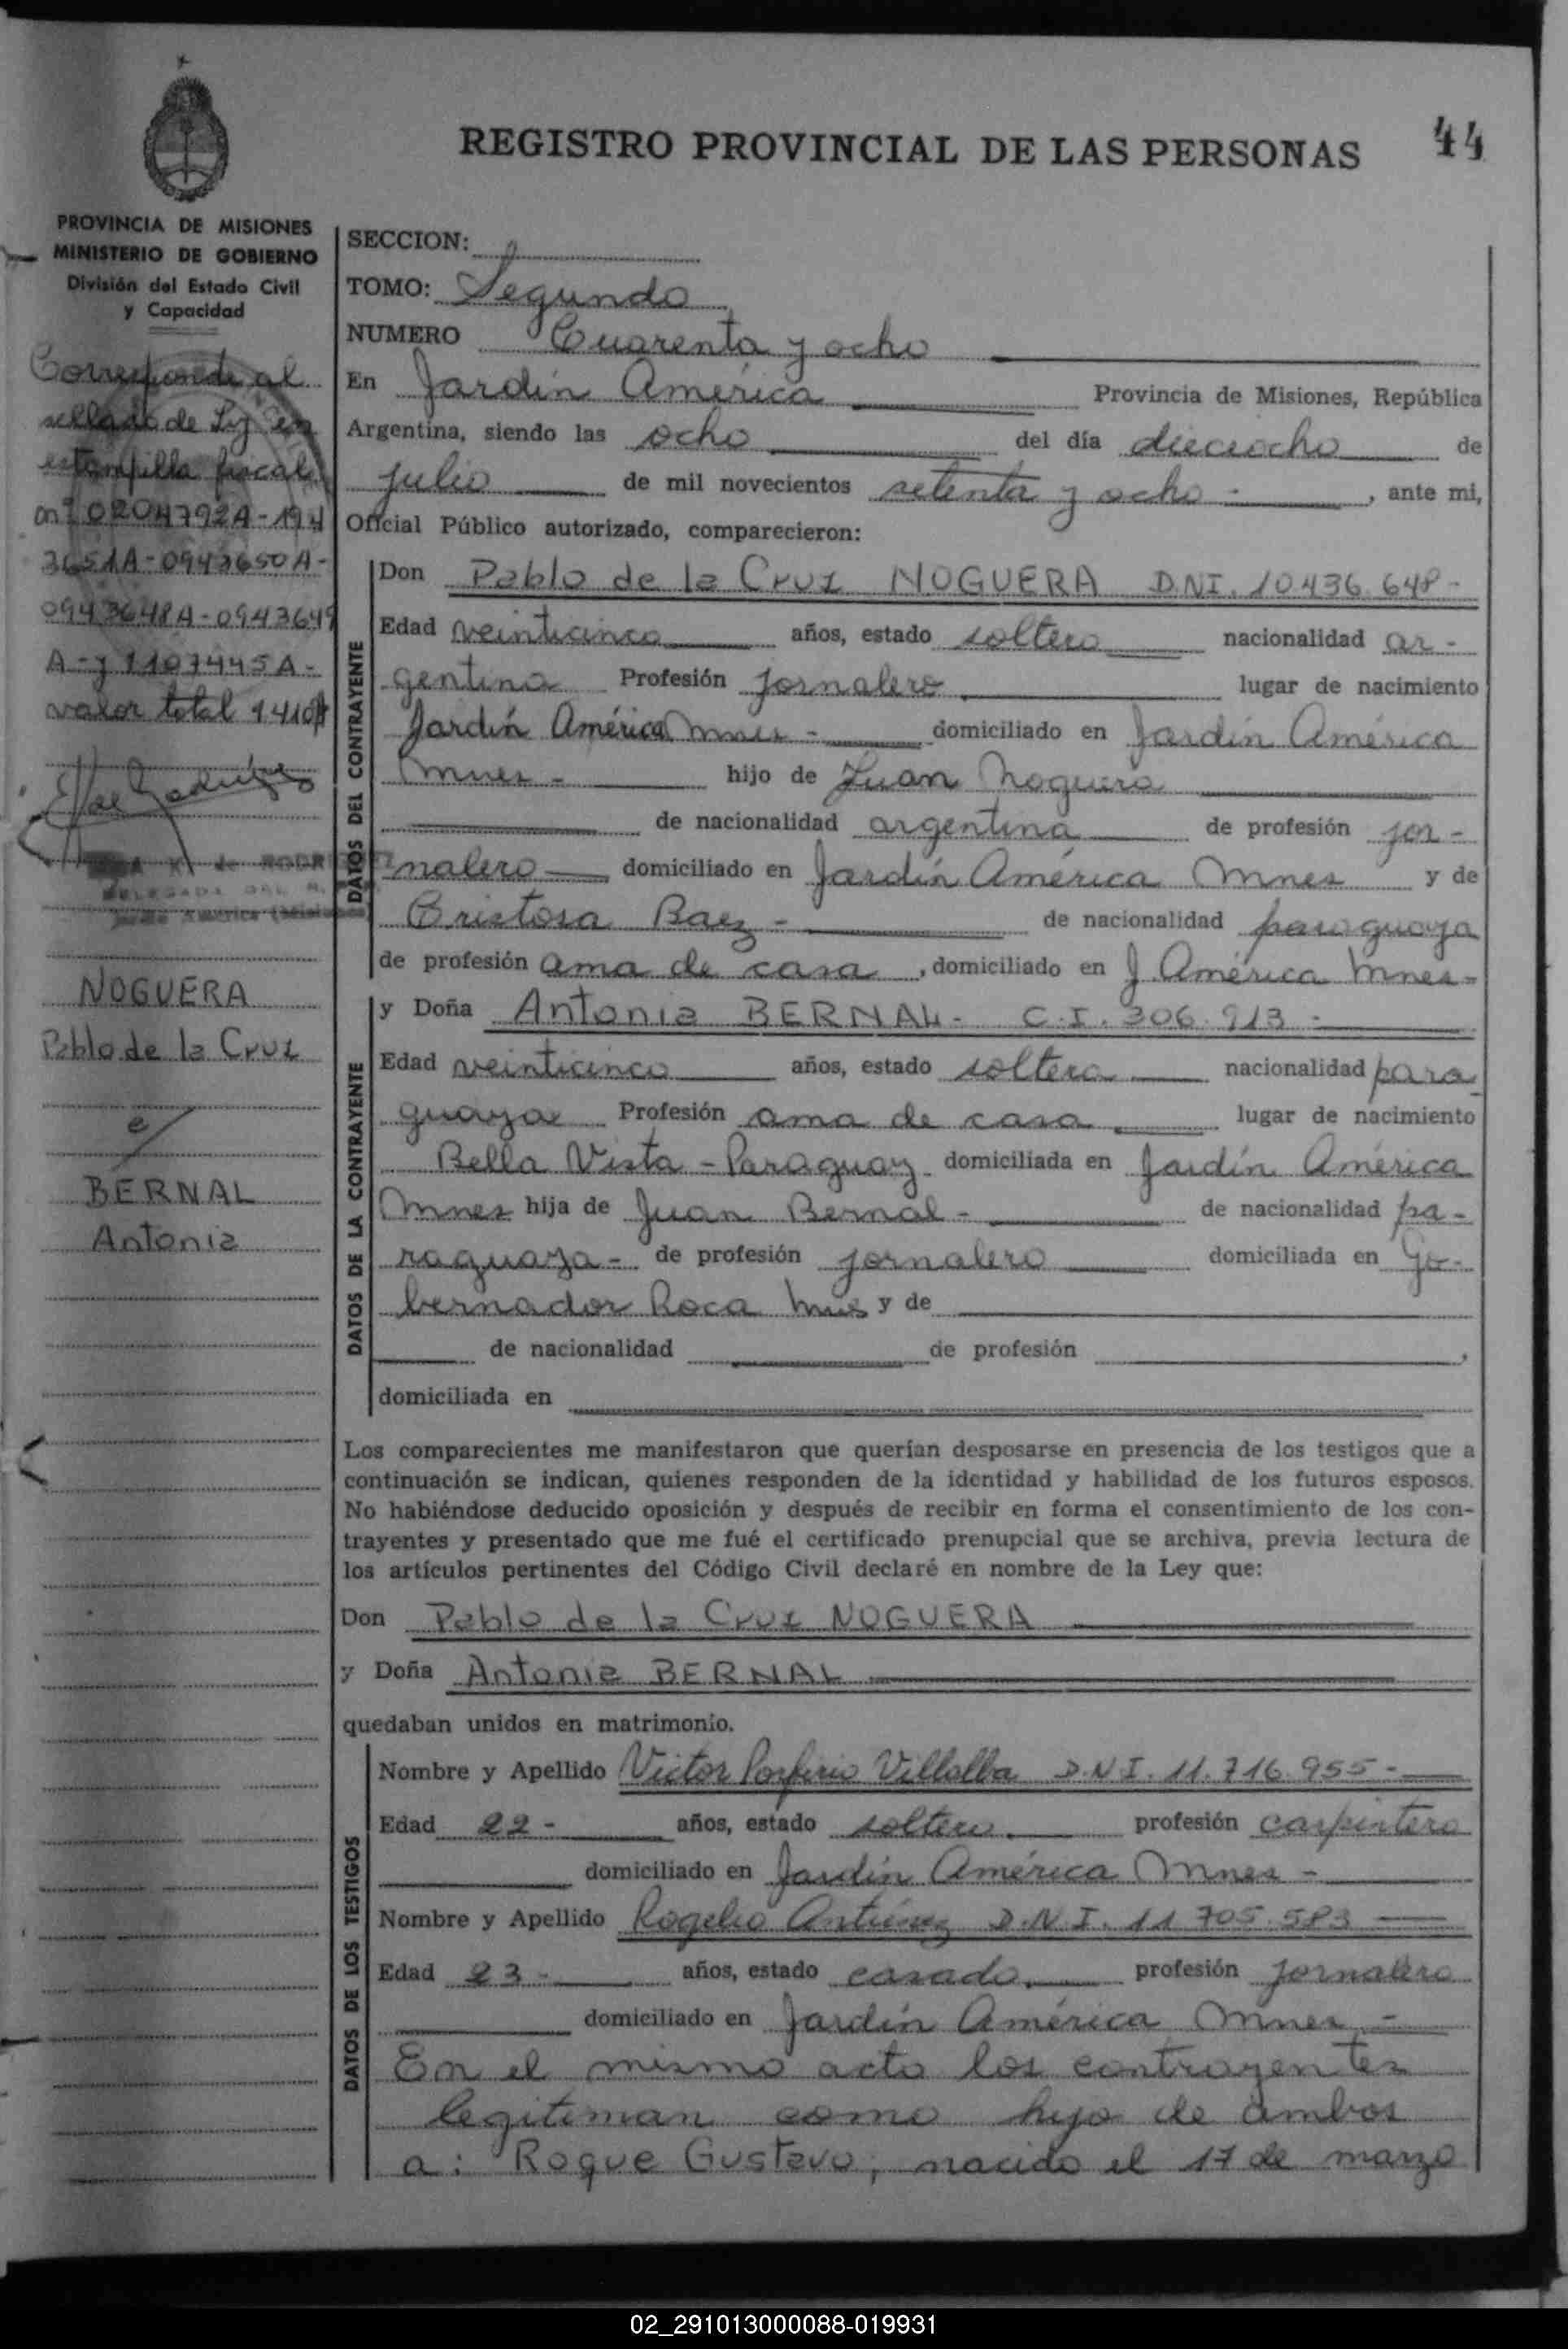 REGISTRO PROVINCIAL DE LAS PERSONAS
44
PROVINCIA DE MISIONES
MINISTERIO DE GOBIERNO
División del Estado Civil
y Capacidad
Corresponde al
sellado de Ley en
estampilla fiscal
nº 0204792A-194
3651A-0943650A-
0943648A-0943649
A-y 1107445A-
valor total
NOGUERA
Pablo de la Cruz
c/
BERNAL
Antonia
SECCION:
TOMO: Segundo
NUMERO Cuarenta y ocho
En Jardín América Provincia de Misiones, República
Argentina, siendo las ocho del día dieciocho de
julio de mil novecientos setenta y ocho -, ante mi,
Oficial Público autorizado, comparecieron:
DATOS DEL CONTRAYENTE
Don Pablo de la Cruz NOGUERA D.NI. 10.436.648-
Edad veinticinco años, estado soltero nacionalidad ar-
gentina Profesión jornalero lugar de nacimiento
Jardín América Mnes - domiciliado en Jardín América
Mnes - hijo de Juan Noguera
de nacionalidad argentina de profesión jor-
nalero domiciliado en Jardín América Mnes y de
Cristosa Baez - de nacionalidad paraguaya
de profesión ama de casa, domiciliado en J. América Mnes-
DATOS DE LA CONTRAYENTE
y Doña Antonia BERNAL- C.I. 306.913-
Edad veinticinco años, estado soltera nacionalidad para
guaya Profesión ama de casa lugar de nacimiento
Bella Vista - Paraguay domiciliada en Jardín América
Mnes hija de Juan Bernal - de nacionalidad pa-
raguaya- de profesión jornalero domiciliada en Go-
bernador Roca Mnes y de
de nacionalidad de profesión ,
domiciliada en
Los comparecientes me manifestaron que querían desposarse en presencia de los testigos que a
continuación se indican, quienes responden de la identidad y habilidad de los futuros esposos.
No habiéndose deducido oposición y después de recibir en forma el consentimiento de los con-
trayentes y presentado que me fué el certificado prenupcial que se archiva, previa lectura de
los artículos pertinentes del Código Civil declaré en nombre de la Ley que:
Don Pablo de la Cruz NOGUERA
y Doña Antonia BERNAL
quedaban unidos en matrimonio.
DATOS DE LOS TESTIGOS
Nombre y Apellido Victor Porfirio Villalba D.N.I. 11.716.955-
Edad 22- años, estado soltero profesión carpintero
domiciliado en Jardín América Mnes -
Nombre y Apellido Rogelio D.N.I. 11.705.583
Edad 23- años, estado casado profesión jornalero
domiciliado en Jardín América Mnes -
En el mismo acto los contrayentes
legitiman como hijo de ambos
a: Roque Gustavo, nacido el 17 de marzo
02_291013000088-019931